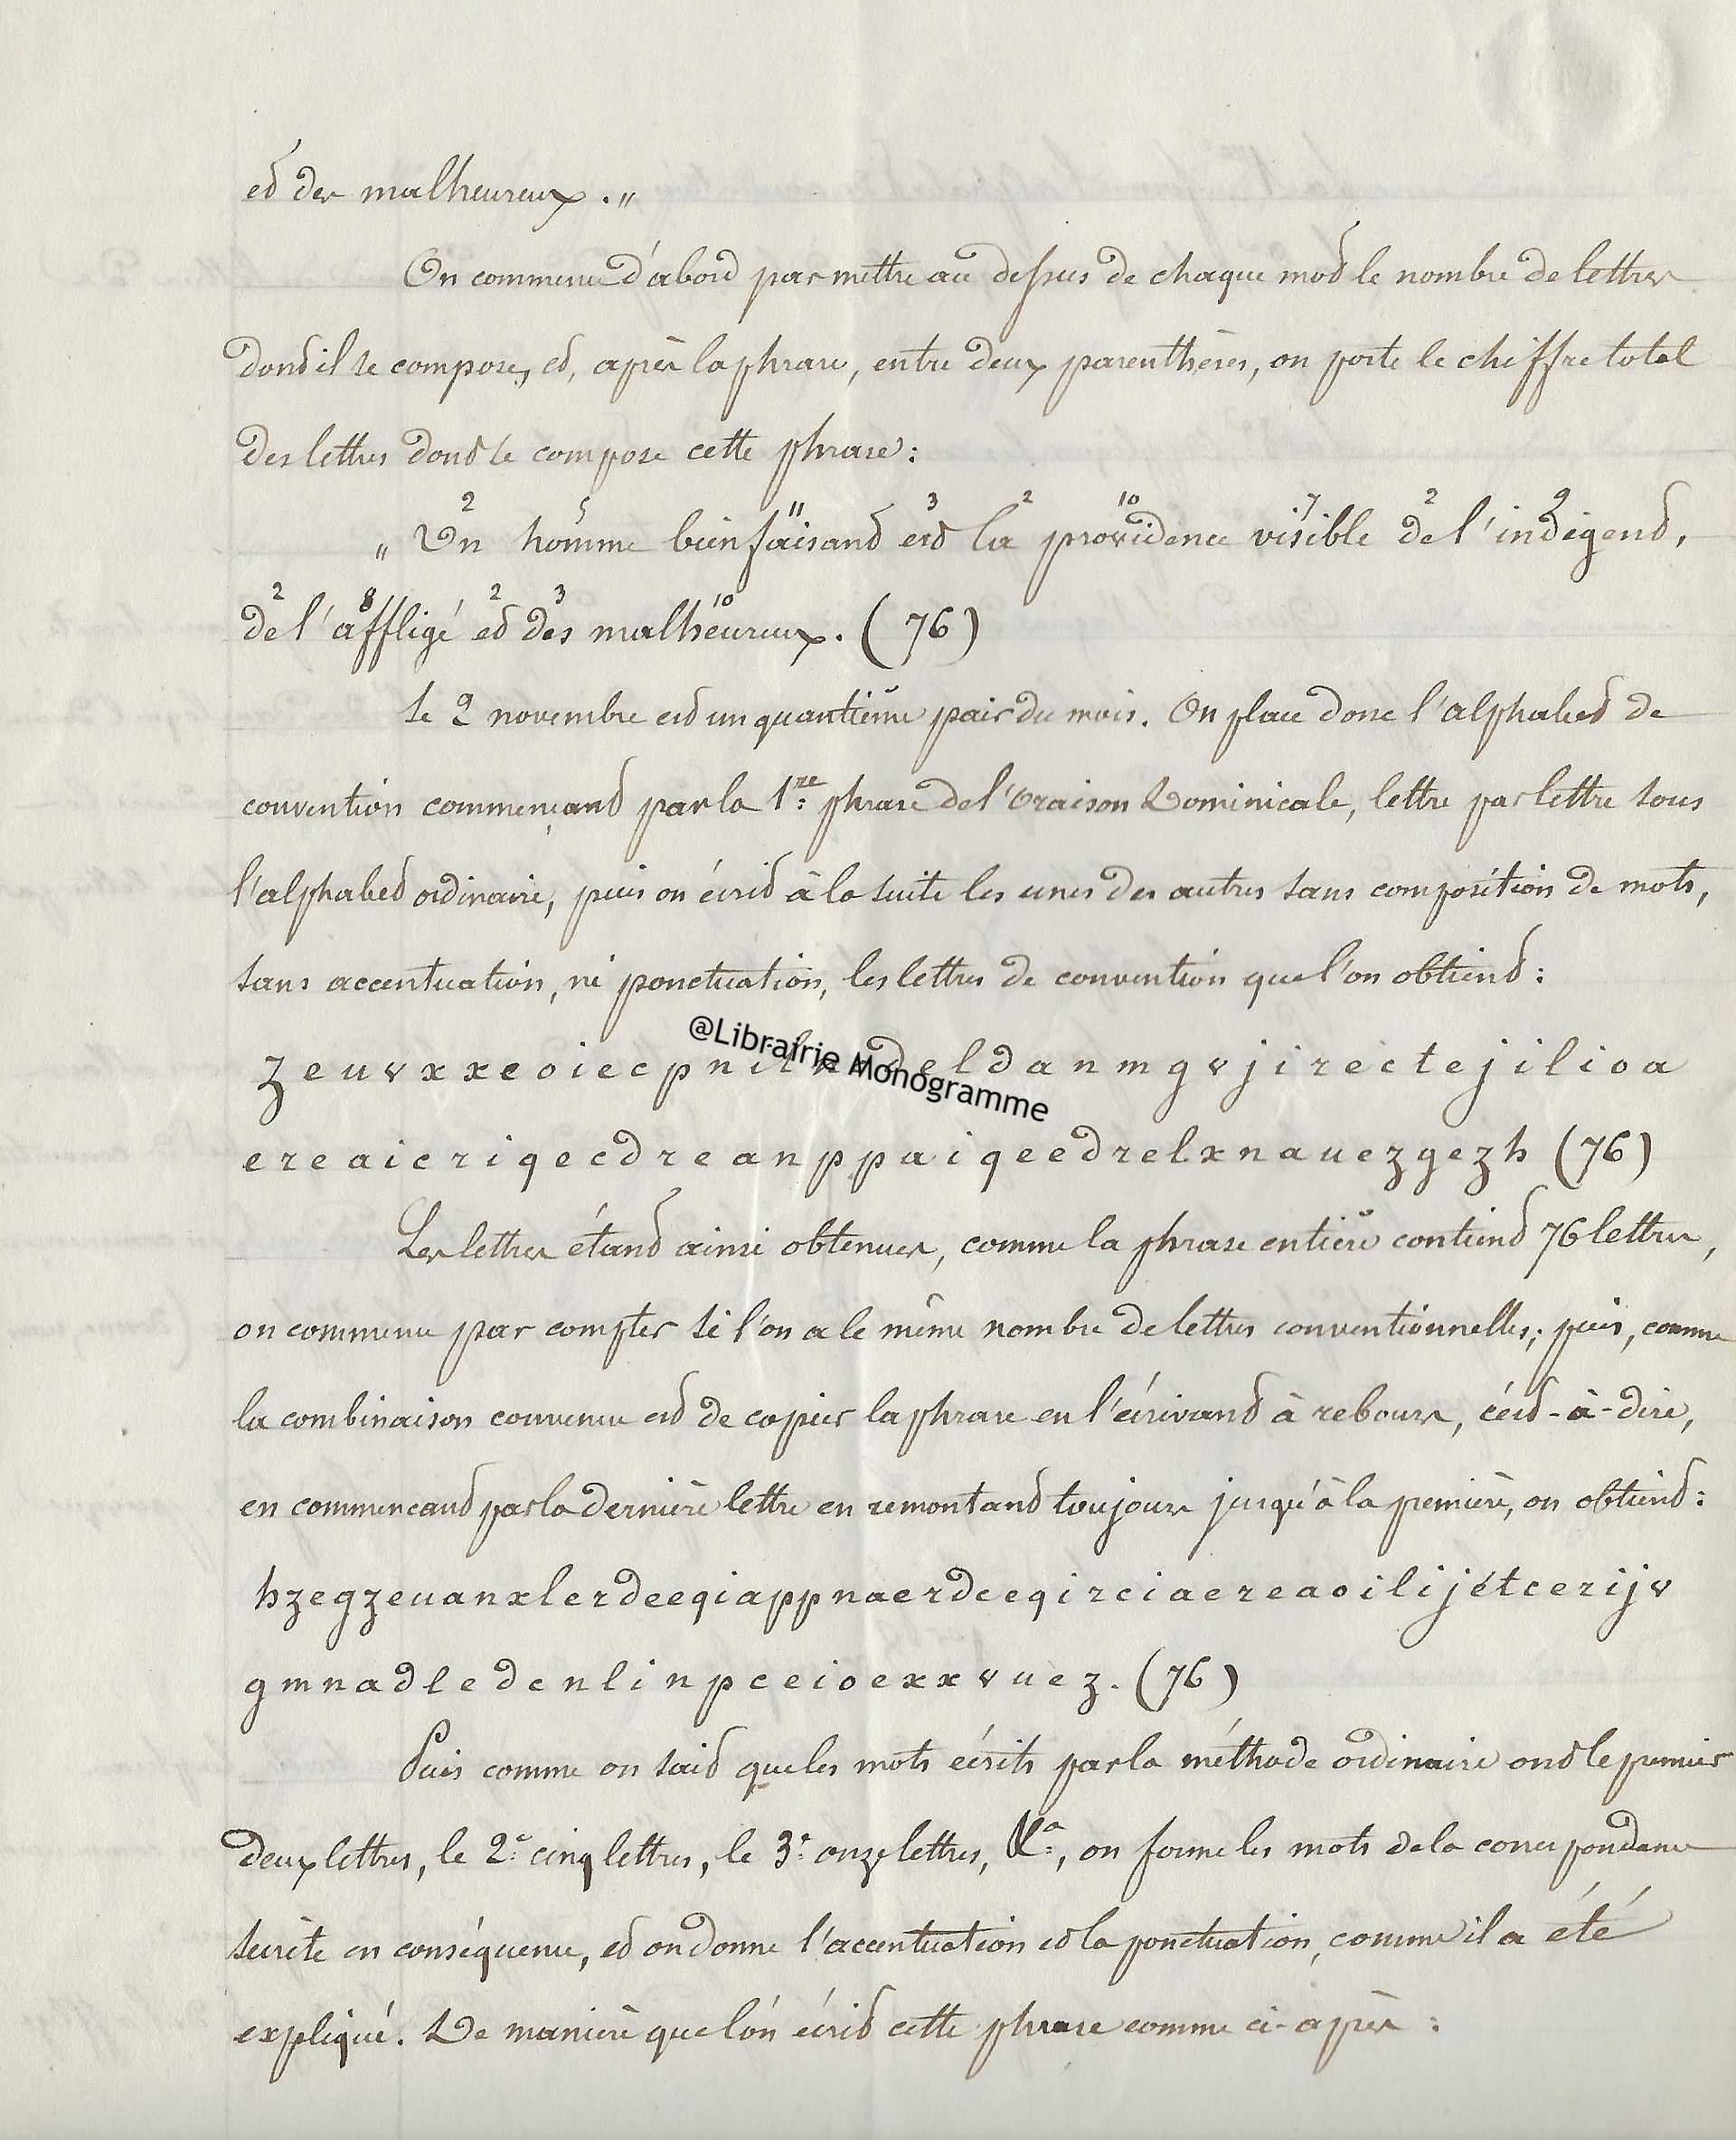 et des malheureux. "
On commence d'abord par mettre au dessus de chaque mot le nombre de lettres
dont il se compose, et, après la phrase, entre deux parenthèses, on porte le chiffre total
des lettres dont se compose cette phrase :
2 5 11 3 2 10 7 2 9
" Un homme bienfaisant est la providence visible de l'indigent,
2 8 2 3 10
de l'affligé et des malheureux. (76)
Le 2 novembre est un quantième pair du mois. On place donc l'alphabet de
convention commençant par la 1re phrase de l'Oraison Dominicale, lettre par lettre sous
l'alphabet ordinaire, puis on écrit à la suite les unes des autres sans composition de mots,
sans accentuation, ni ponctuation, les lettres de convention que l'on obtient :
@Librairie Monogramme
z e u v x x e o i e c p n i l n e d e l d a n m g v j i r e c t e j i l i o a
e r e a i c r i q e c d r e a n p p a i q e e d r e l x n a u e z g e z h (76)
Les lettres étant ainsi obtenues, comme la phrase entière contient 76 lettres,
on commence par compter si l'on a le même nombre de lettres conventionnelles; puis, comme
la combinaison convenue est de copier la phrase en l'écrivant à rebours, c'est-à-dire,
en commencant par la dernière lettre en remontant toujours jusqu'à la première, on obtient :
h z e g z e u a n x l e r d e e q i a p p n a e r d c e q i r c i a e r e a o i l i j é t c e r i j v
g m n a d l e d e n l i n p c e i o e x x v u e z. (76)
Puis comme on sait que les mots écrits par la méthode ordinaire ont le premier
deux lettres, le 2e cinq lettres, le 3e onze lettres, &a, on forme les mots de la correspondance
secrète en conséquence, et on donne l'accentuation et la ponctuation, comme il a été
expliqué. De manière que l'on écrit cette phrase comme ci-après :